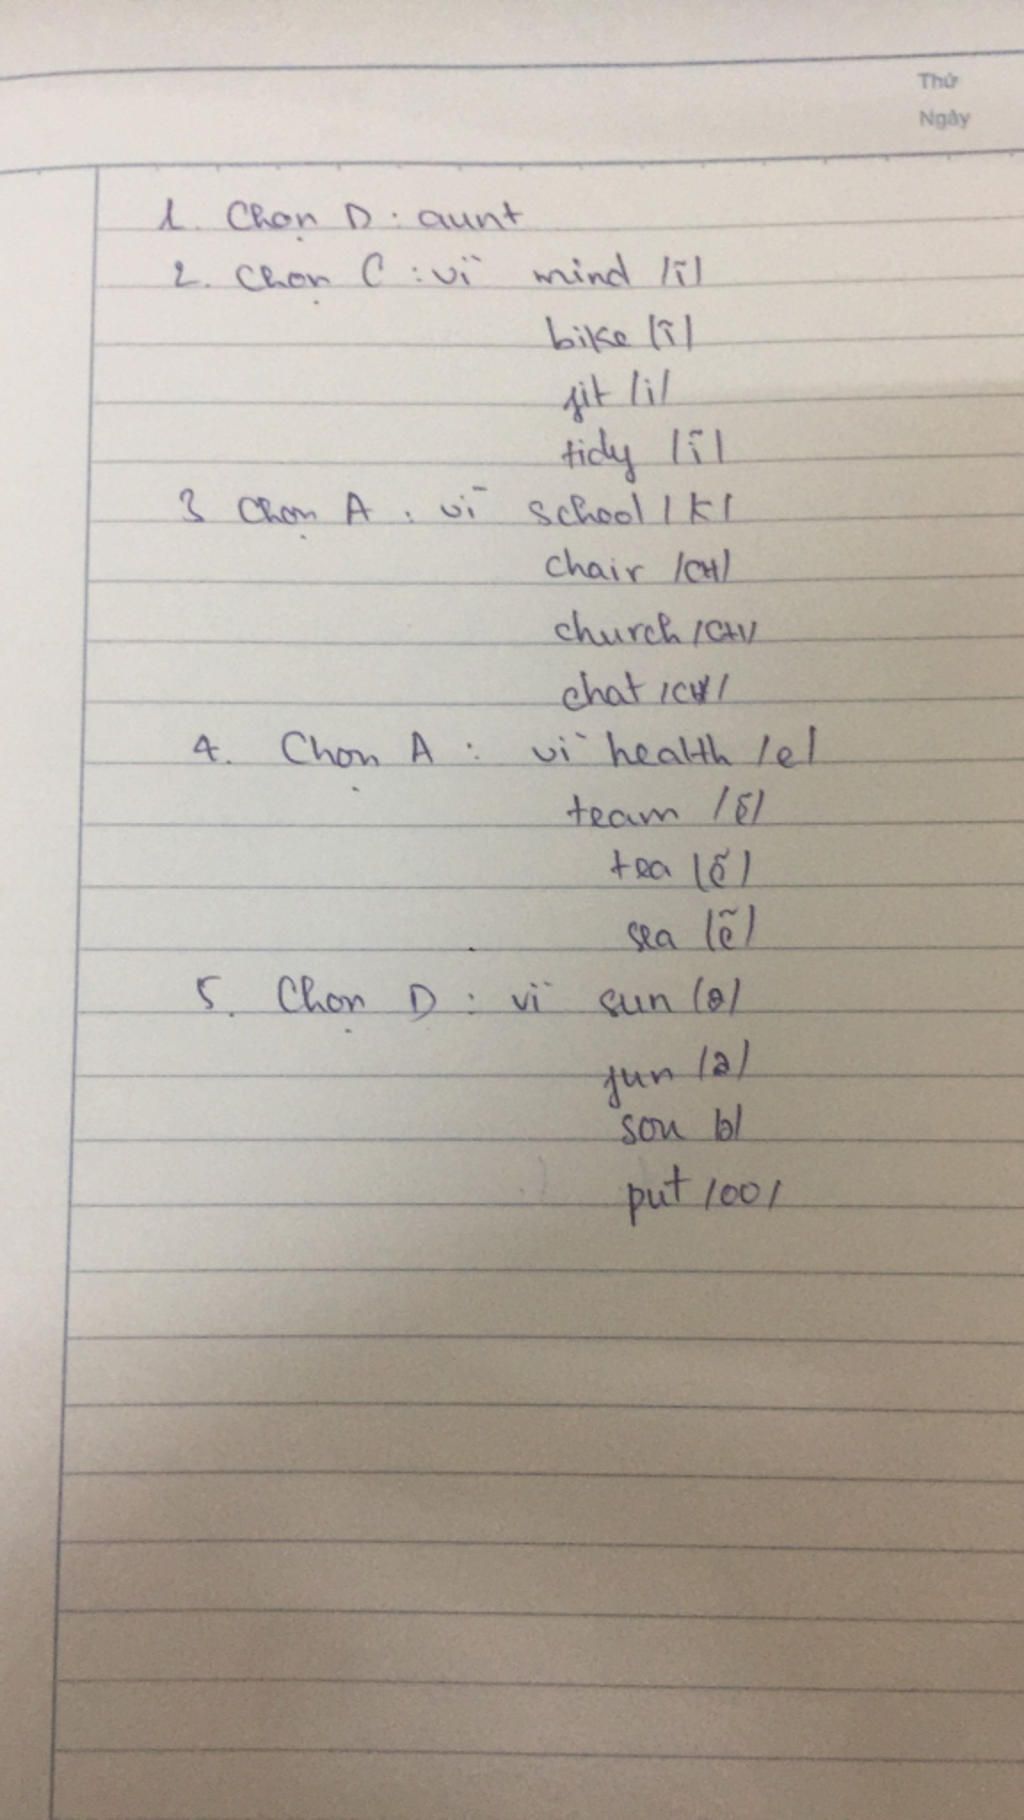 Thứ
Ngày
1. Chọn D : aunt
2. Chọn C : vì mind /ī/
bike /ī/
fit /i/
tidy /ī/
3 Chọn A : vì school /k/
chair /CH/
church /CH/
chat /CH/
4. Chọn A : vì health /e/
team /ē/
tea /ē/
sea /ē/
5. Chọn D : vì sun /ə/
fun /ə/
son
put /oo/